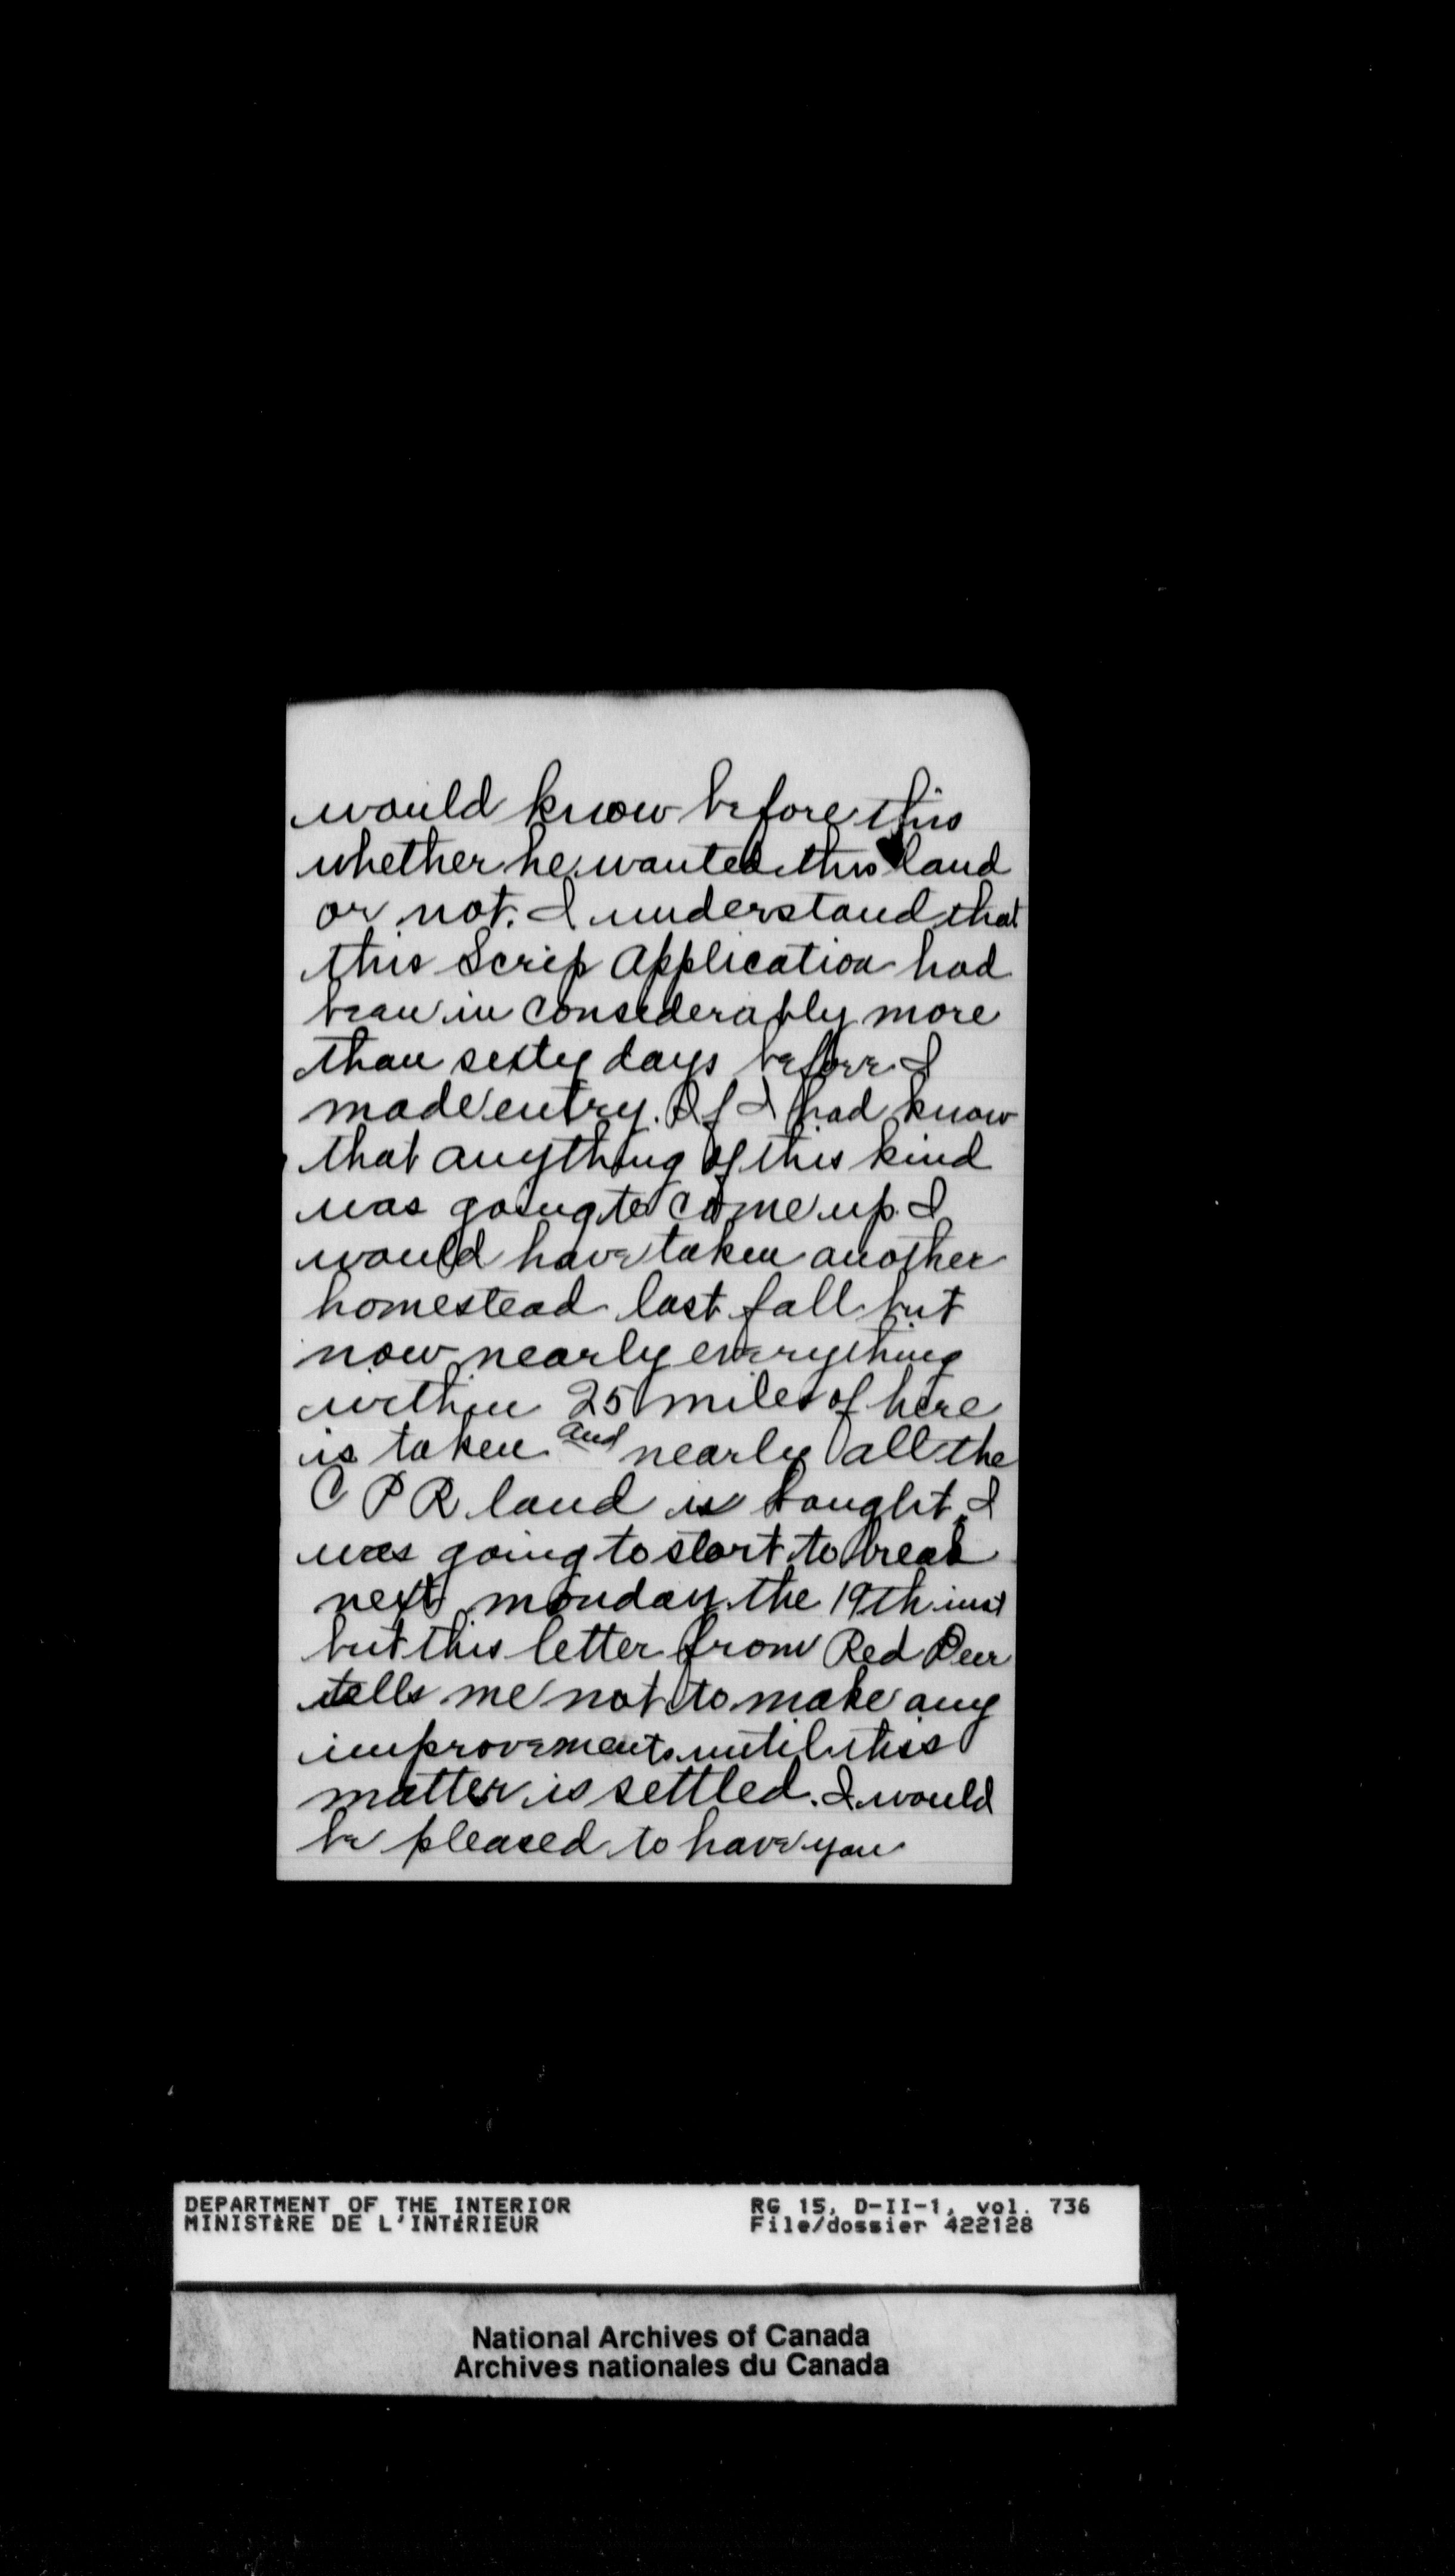 would know before this
whether he wanted this land
or not. I understand that
this Scrip Application had
bean in considerably more
than sixty days before I
made entry. If I had know
that anything of this kind
was going to come up I
would have taken another
homestead last fall but
now nearly everything
within 25 miles of here
is taken and nearly all the
C P R land is bought. I
was going to start to break
next monday the 19th inst
but this letter from Red Deer
tells me not to make any
improvements until this
matter is settled. I would
be pleased to have you
DEPARTMENT OF THE INTERIOR RG 15, D-II-1, vol. 736
MINISTÈRE DE L'INTÉRIEUR File/dossier 422128
National Archives of Canada
Archives nationales du Canada